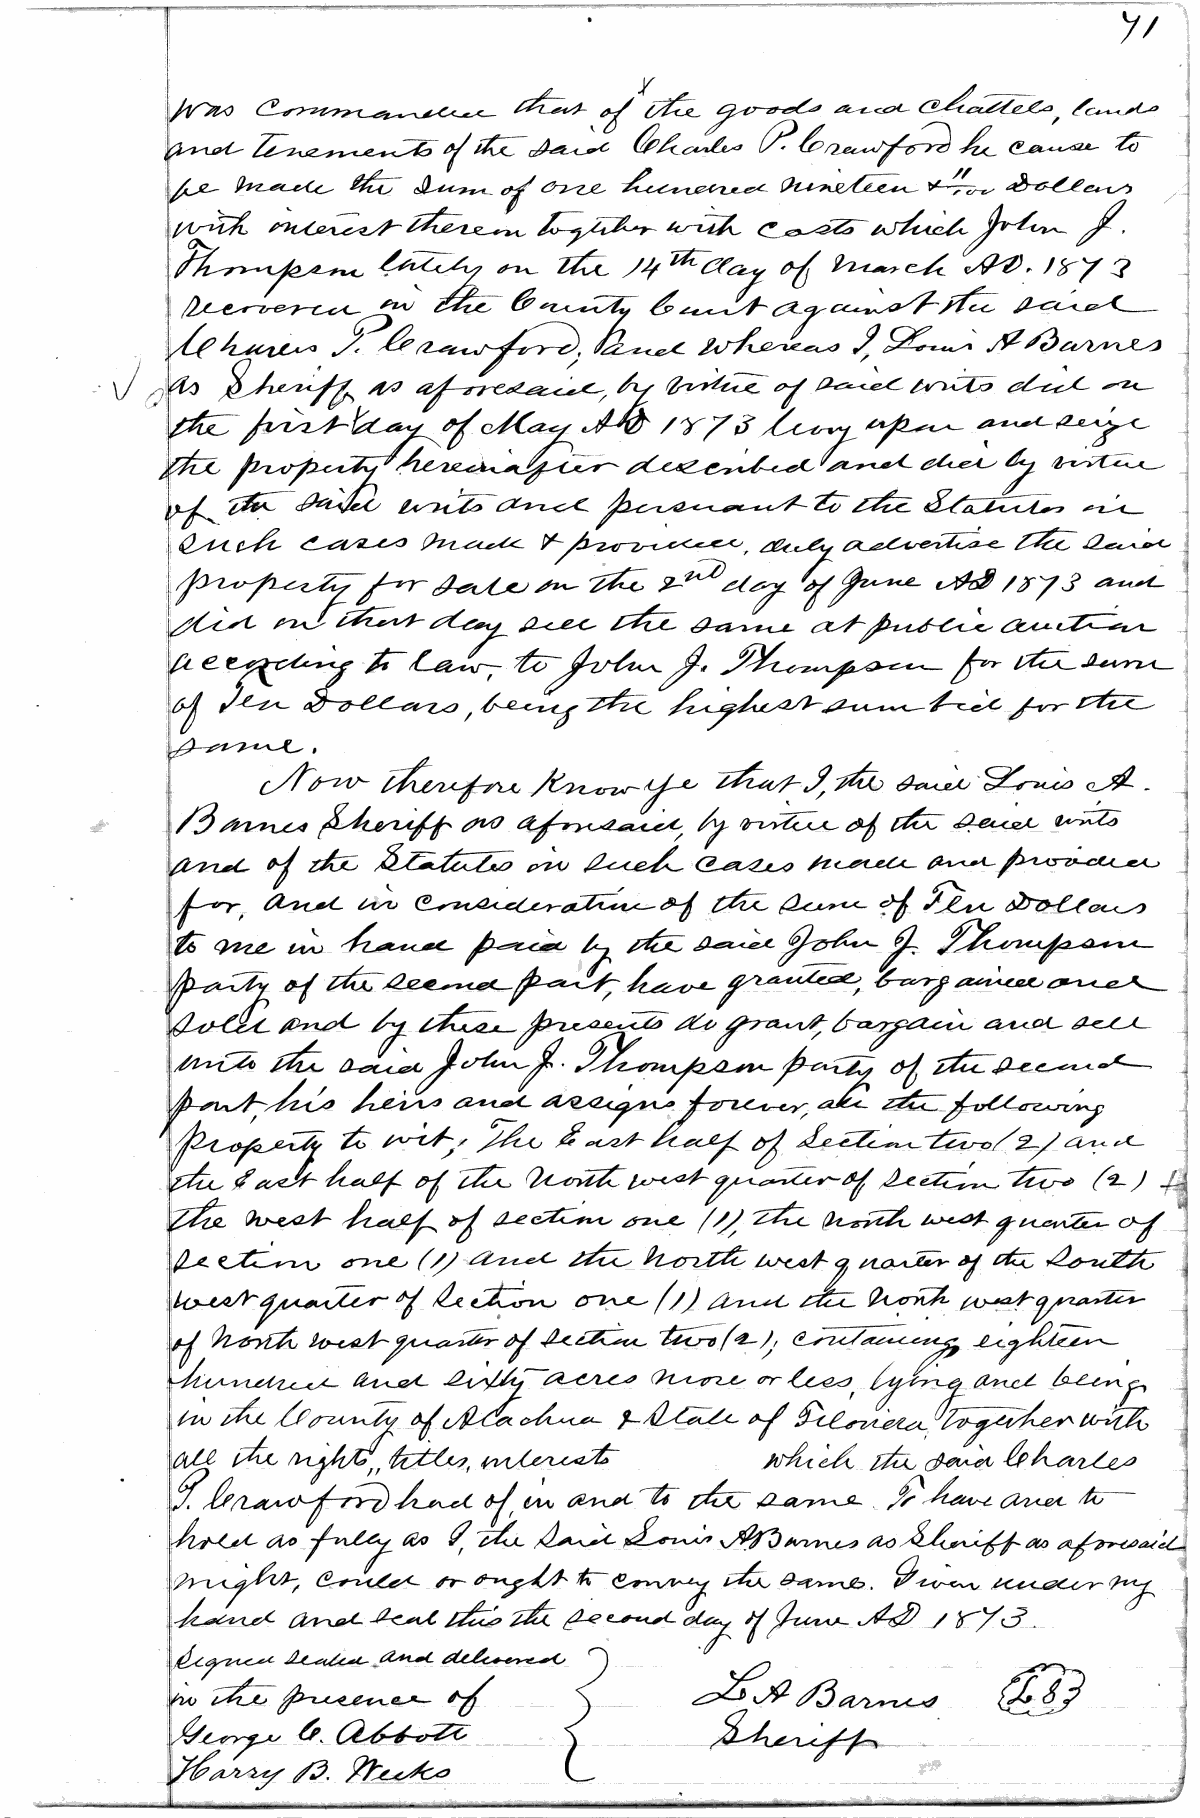 71
was commanded that of the goods and chattels, lands
and tenements of the said Charles P. Crawford he cause to
be made the sum of one hundred nineteen & 11/100 Dollars
with interest thereon together with costs which John J.
Thompson lately on the 14th day of March AD. 1873
recovered in the County Court against the said
Charles P. Crawford; and whereas I, Louis A Barnes
as Sheriff as aforesaid, by virtue of said writs did on
the first day of May AD 1873 levy upon and seize
the property hereinafter described and did by virtue
of the said writs and pursuant to the Statutes in
such cases made & provided, duly advertise the said
property for sale on the 2nd day of June AD 1873 and
did on that day sell the same at public auction
according to law, to John J. Thompson for the sum
of Ten Dollars, being the highest sum bid for the
same.
Now therefore Know Ye that I, the said Louis A.
Barnes Sheriff as aforesaid, by virtue of the said writs
and of the Statutes in such cases made and provided
for, and in consideration of the sum of Ten Dollars
to me in hand paid by the said John J. Thompson
party of the second part, have granted, bargained and
sold and by these presents do grant, bargain and sell
unto the said John J. Thompson party of the second
part, his heirs and assigns forever, all the following
property to wit; The East half of Section two (2) and
the East half of the North west quarter of section two (2) &
the west half of section one (1), the north west quarter of
section one (1) and the North west quarter of the South
west quarter of Section one (1) and the North west quarter
of North west quarter of section two (2); containing eighteen
hundred and sixty acres more or less, lying and being
in the County of Alachua & State of Florida, together with
all the rights, titles, interests which the said Charles
P. Crawford had of, in and to the same. To have and to
hold as fully as I, the said Louis A Barnes as Sheriff as aforesaid
might, could or ought to convey the same. Given under my
hand and seal this the second day of June AD 1873.
Signed sealed and delivered
in the presence of L A Barnes
George C. Abbott Sheriff
Harry B. Weeks